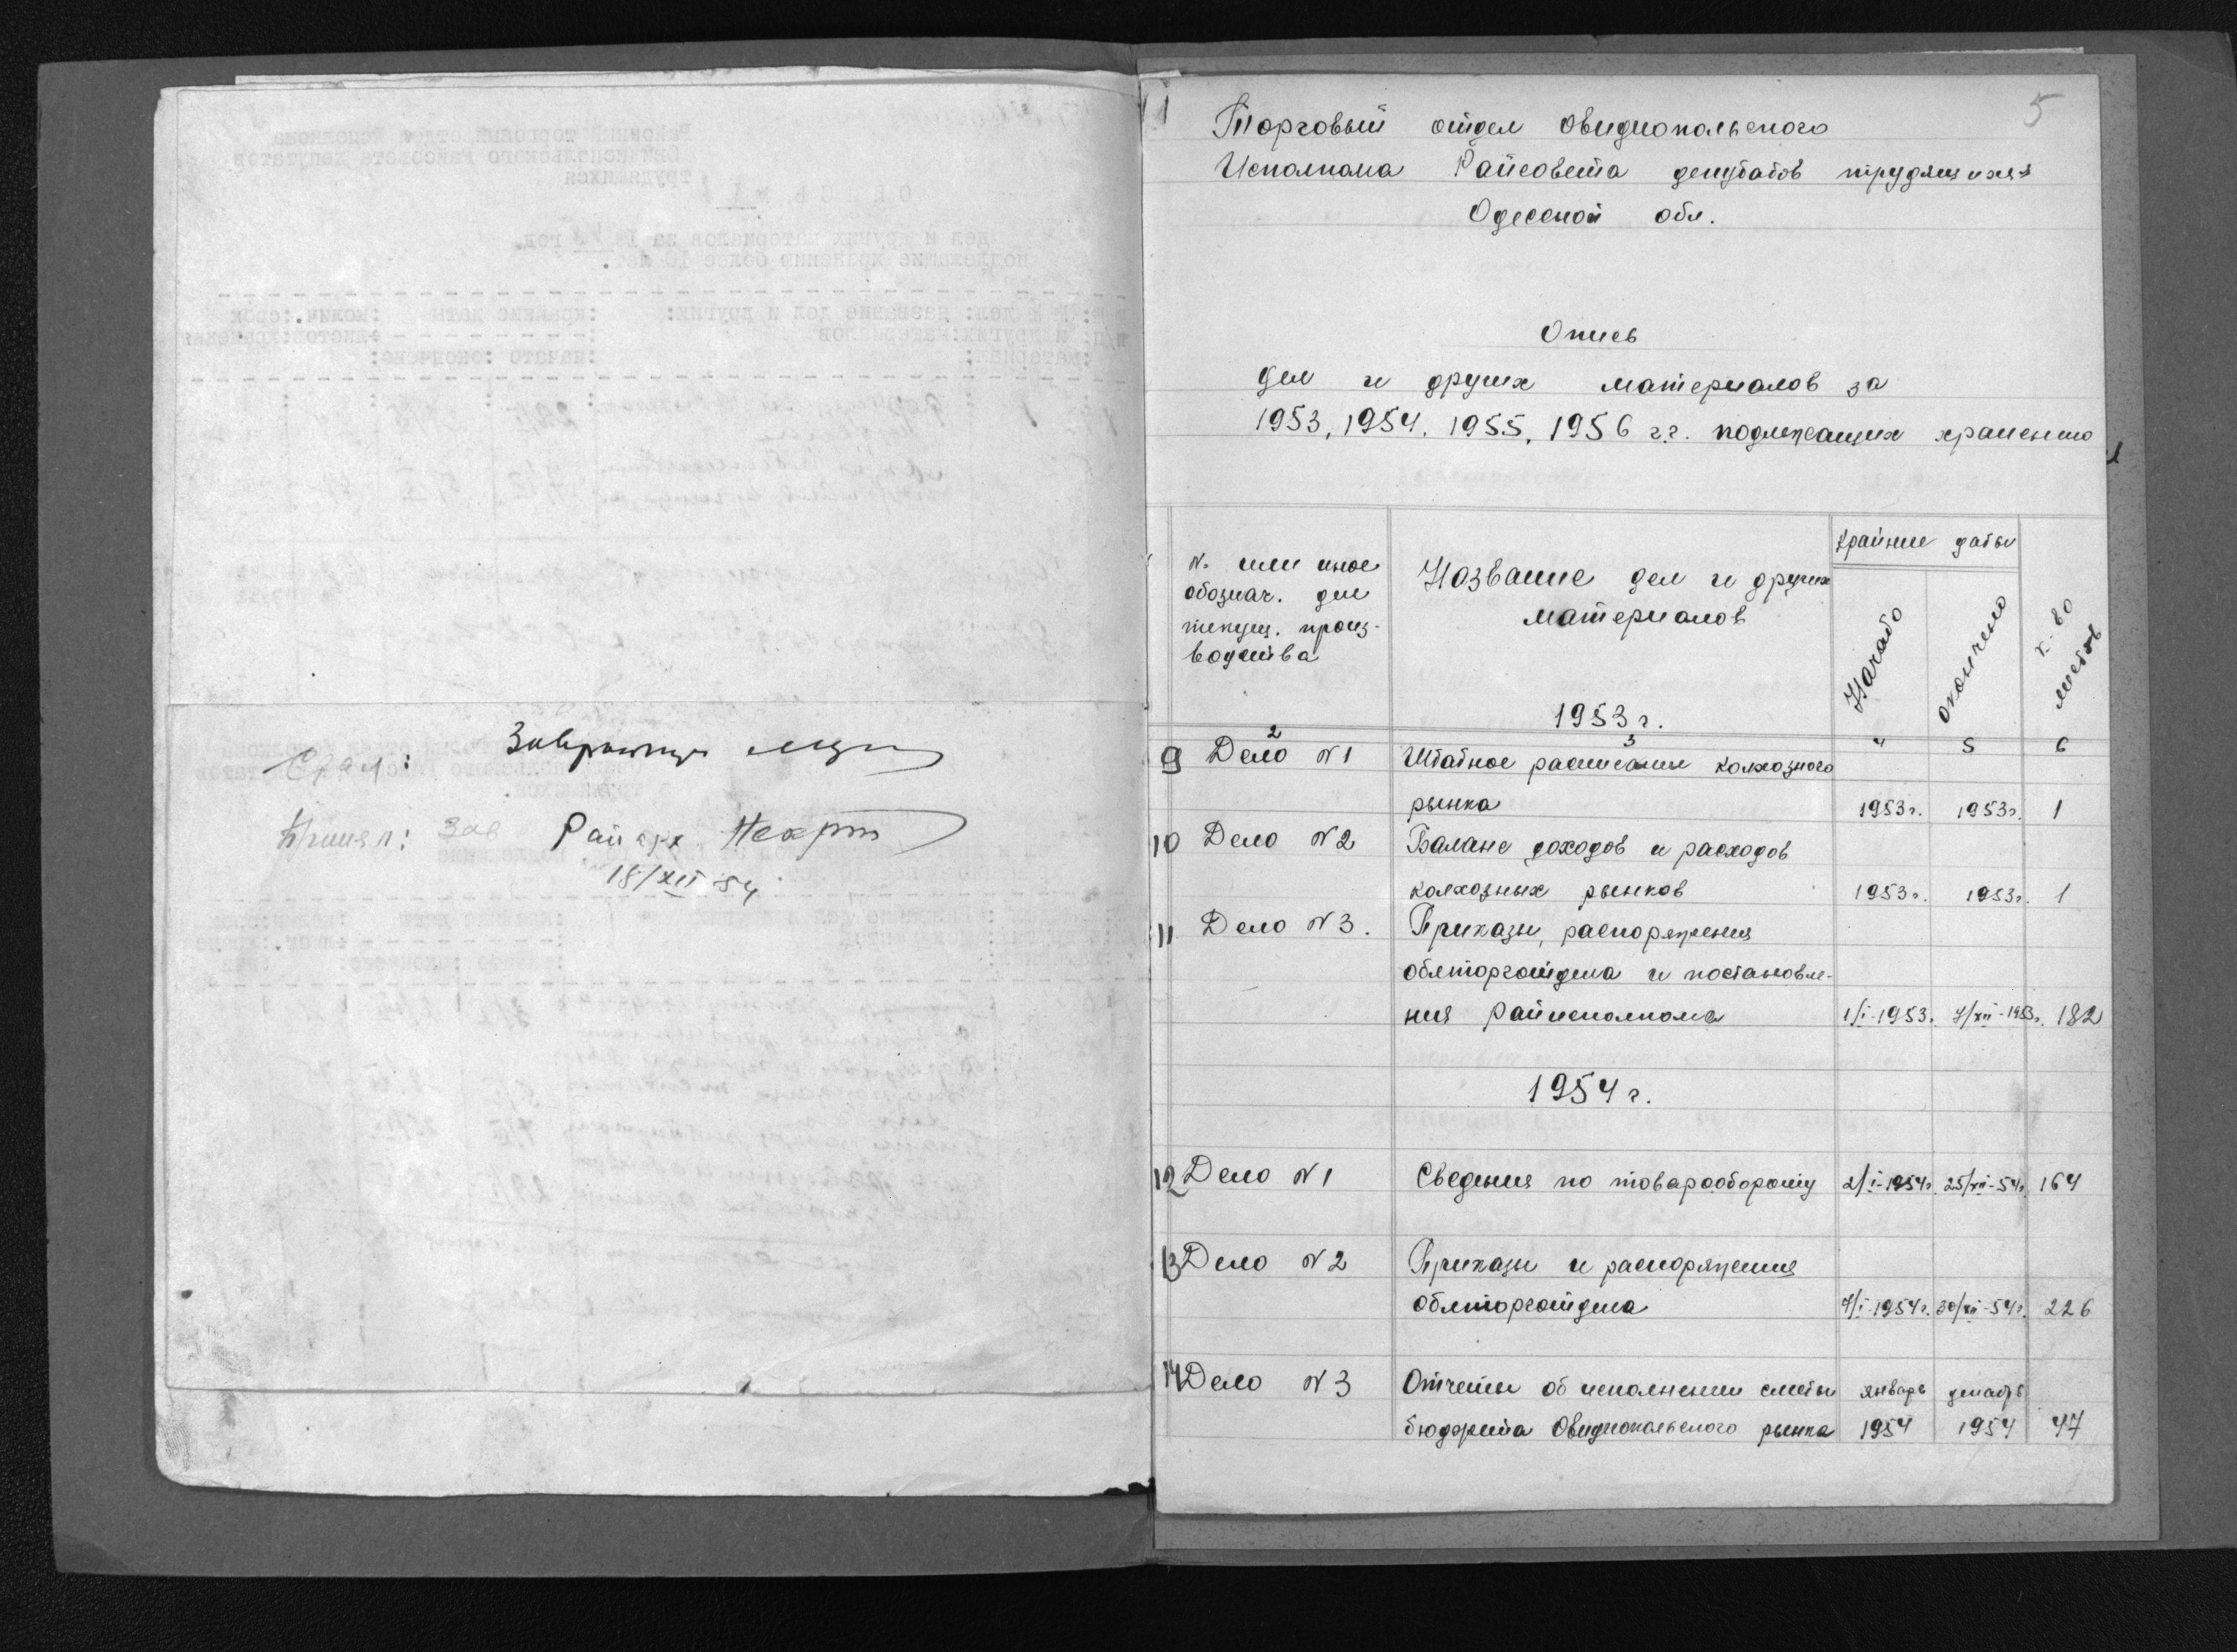 Сдал:
Принял: Зав Райарх
18/XII 54
5
Торговый отдел Овидиопольского
Исполкома Райсовета депутатов трудящихся
Одесской обл.
Опись
дел и других материалов за
1953, 1954, 1955, 1956 г.г. подлежащих хранению
№ или иное обознач. дел текущ. произ-водства
Название дел и других материалов
Крайние даты
Начато
окончено
к-во листов
1953 г.
2 3 4 5 6
9 Дело №1 Штатное расписание колхозного
рынка 1953г. 1953г. 1
10 Дело №2 Баланс доходов и расходов
колхозных рынков 1953г. 1953г. 1
11 Дело №3. Приказы, распоряжения
облторготдела и постановле-
ния райисполкома 1/I-1953. 7/XII-1953г. 182
1954 г.
12 Дело №1 Сведения по товарообороту 2/I-1954г. 25/XII-54г. 164
13 Дело №2 Приказы и распоряжения
облторготдела 4/I-1954г. 30/XII-54г. 226
14 Дело №3 Отчеты об исполнении сметы январь декабрь
бюджета Овидиопольского рынка 1954 1954 47